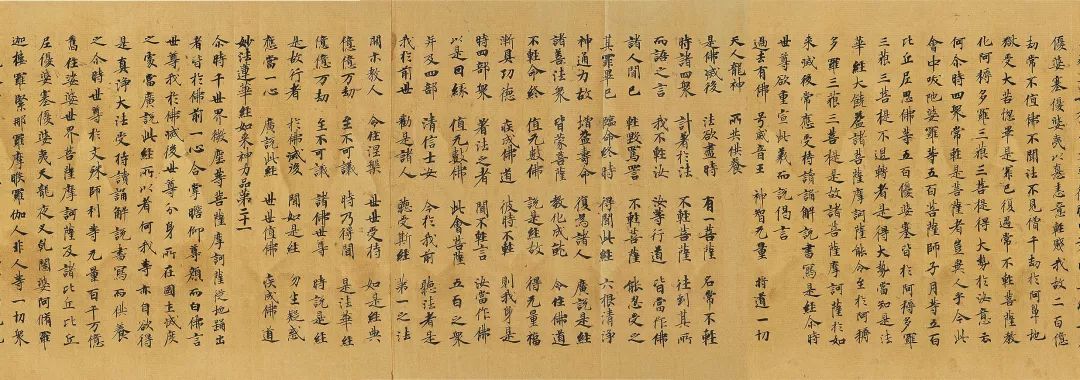 優婆塞優婆夷以瞋恚意輕賤我故二百億
劫常不值佛不聞法不見僧千劫於阿鼻地
獄受大苦惱畢是罪已復遇常不輕菩薩教
化阿耨多羅三藐三菩提得大勢於汝意云
何尒時四衆常輕是菩薩者豈異人乎今此
會中跋陁婆羅等五百菩薩師子月等五百
比丘尼思佛等五百優婆塞皆於阿耨多羅
三藐三菩提不退轉者是得大勢當知是法
華經大饒益諸菩薩摩訶薩能令至於阿耨
多羅三藐三菩提是故諸菩薩摩訶薩於如
來滅後常應受持讀誦解說書寫是經尒時
世尊欲重宣此義而說偈言
過去有佛 号威音王 神智无量 將道一切
天人龍神 所共供養
是佛滅後 法欲盡時 有一菩薩 名常不輕
時諸四衆 計著於法 不輕菩薩 往到其所
而語之言 我不輕汝 汝等行道 皆當作佛
諸人聞已 輕毀罵詈 不輕菩薩 能忍受之
其罪畢已 臨命終時 得聞此經 六根清淨
神通力故 增益壽命 復爲諸人 廣說是經
諸著法衆 皆蒙菩薩 教化成就 令住佛道
不輕命終 值无數佛 說是經故 得无量福
漸具功德 疾成佛道 彼時不輕 則我身是
時四部衆 著法之者 聞不輕言 汝當作佛
以是因緣 值无數佛 此會菩薩 五百之衆
并及四部 清信士女 今於我前 聽法者是
我於前世 勸是諸人 聽受斯經 第一之法
開示教人 令住涅槃 世世受持 如是經典
億億万劫 至不可議 時乃得聞 是法華經
億億万劫 至不可議 諸佛世尊 時說是經
是故行者 於佛滅後 聞如是經 勿生疑惑
應當一心 廣說此經 世世值佛 疾成佛道
妙法蓮華經如來神力品第二十一
尒時千世界微塵等菩薩摩訶薩從地踊出
者皆於佛前一心合掌瞻仰尊顏而白佛言
世尊我於佛滅後世尊分身所在國土滅度
之處當廣說此經所以者何我等亦自欲得
是真淨大法受持讀誦解說書寫而供養
之尒時世尊於文殊師利等无量百千万億
舊住娑婆世界菩薩摩訶薩及諸比丘比丘
尼優婆塞優婆夷天龍夜叉乹闥婆阿脩羅
迦樓羅緊那羅摩睺羅伽人非人等一切衆